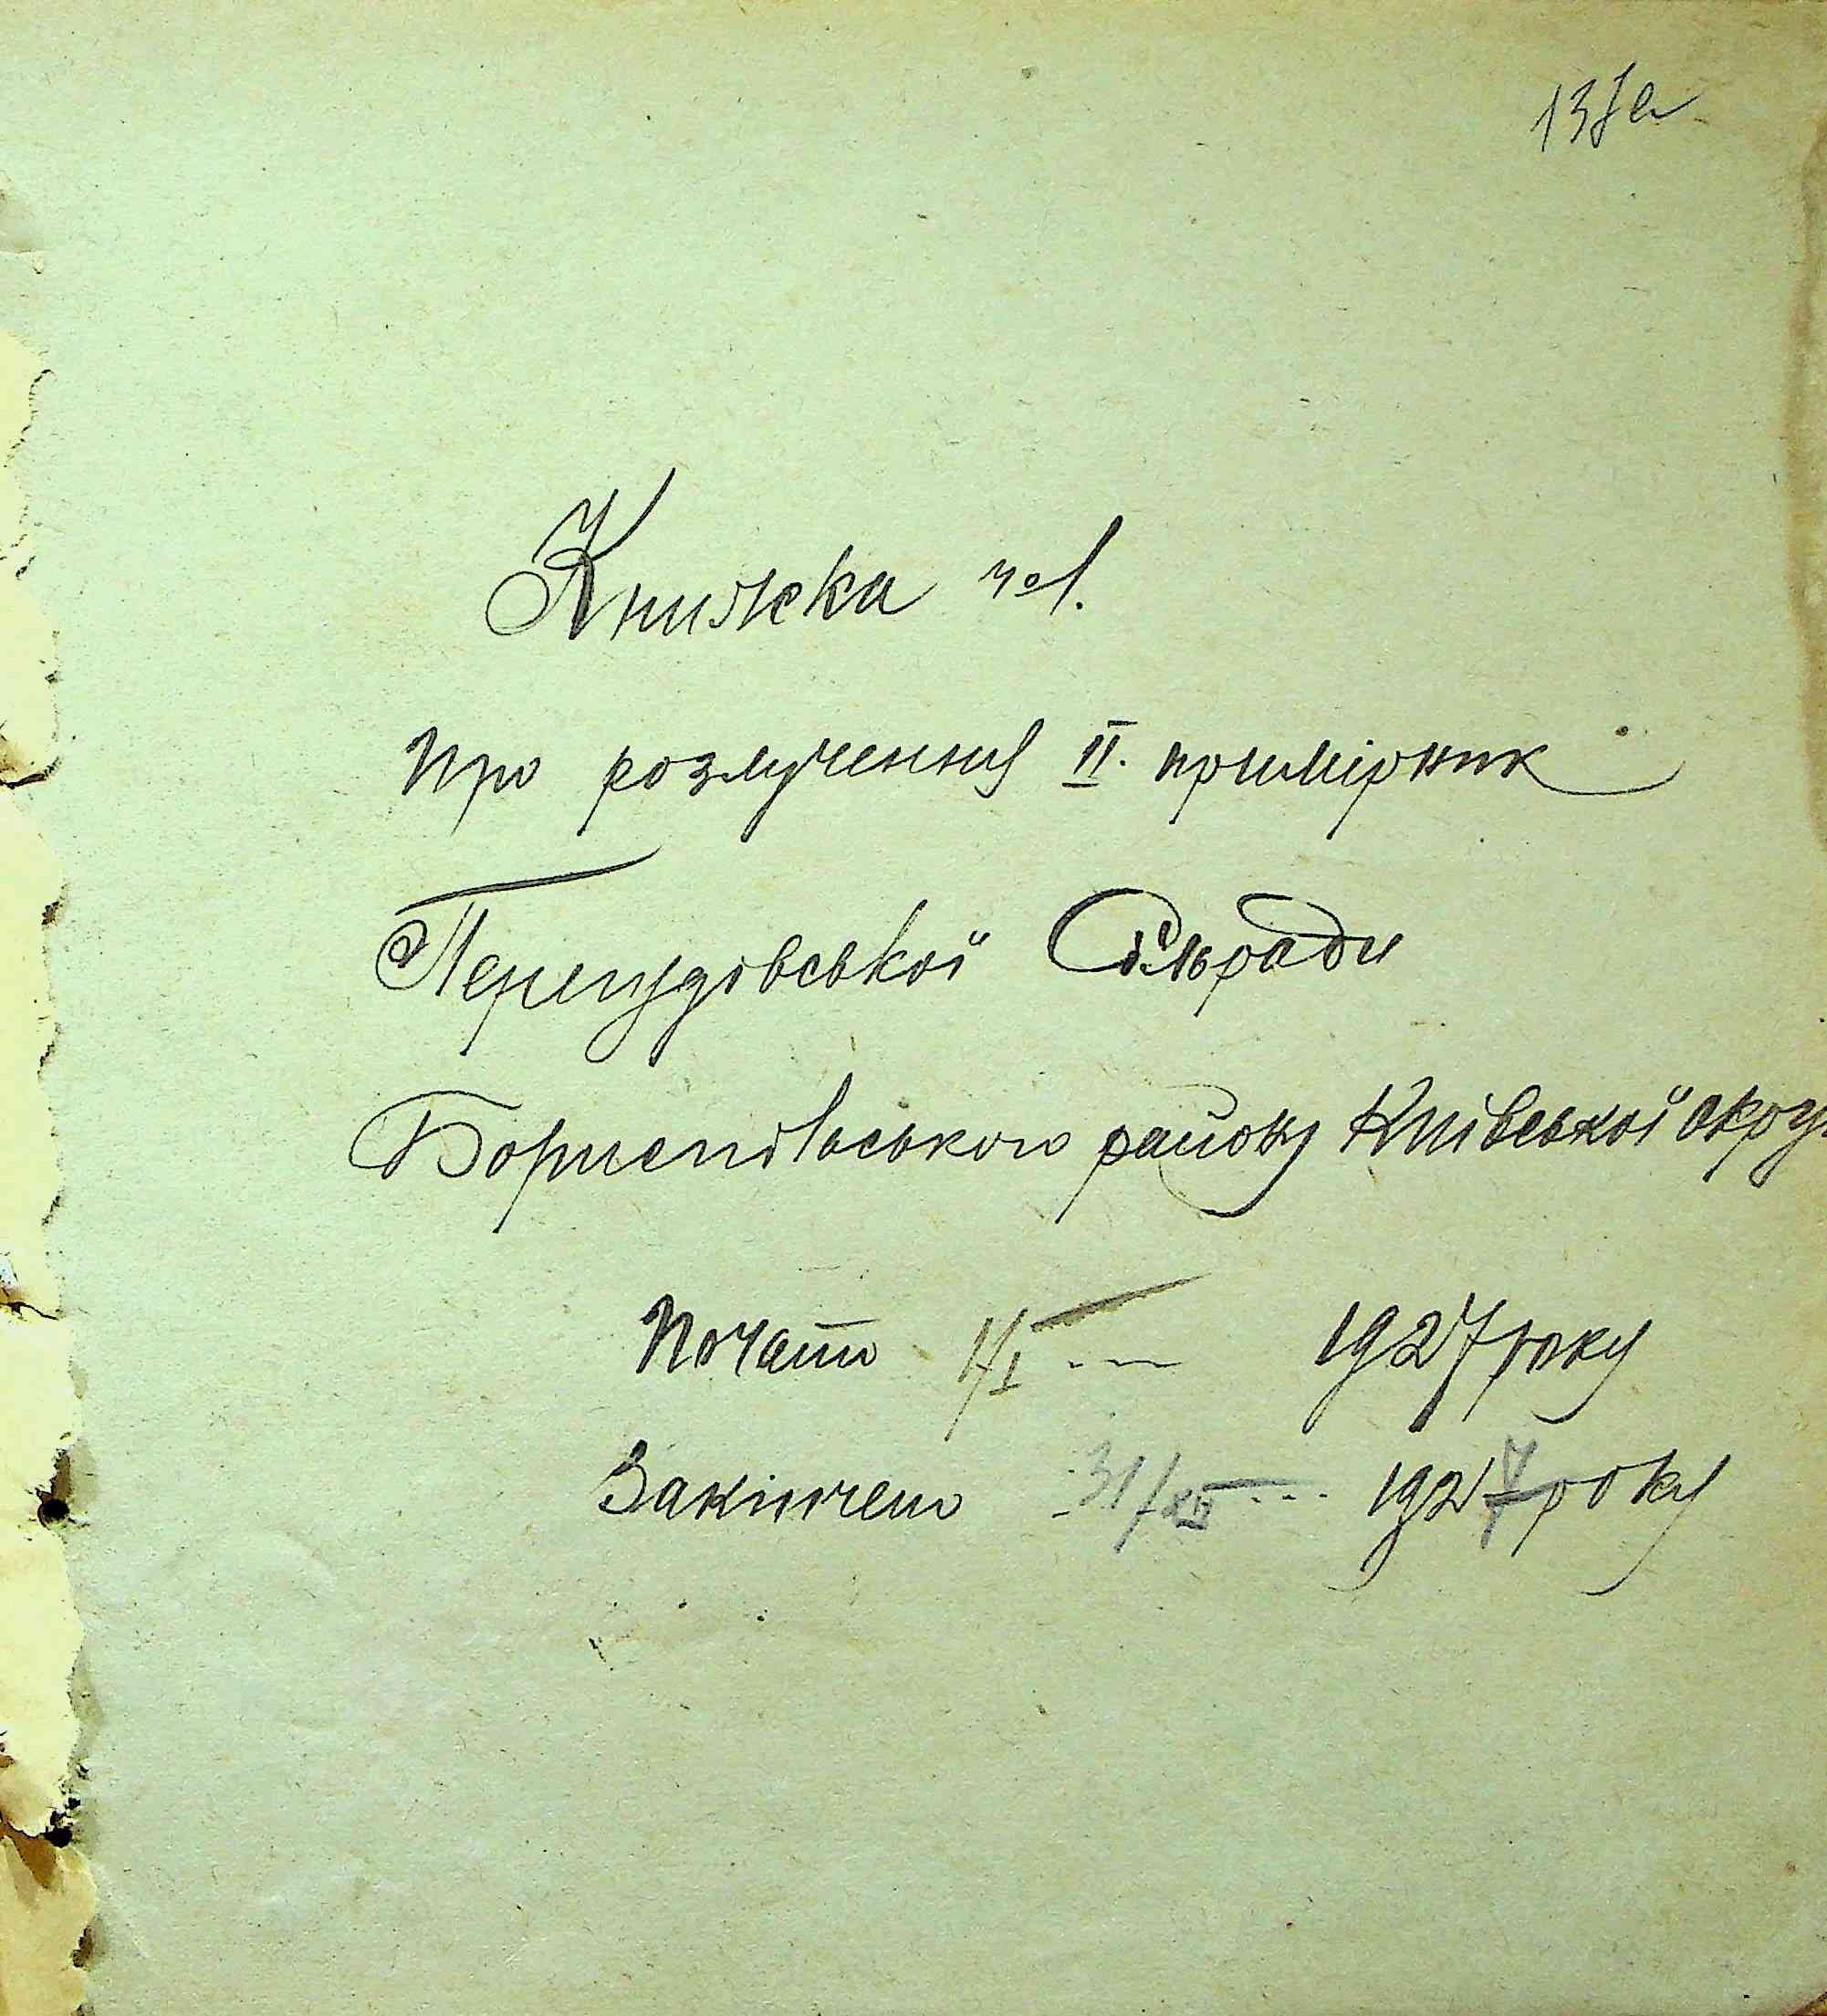 137а
Книжка ч⁰1.
Про розлучення II. примірник
Перегудівської Сільради
Бориспільського району Київської округ
Почато 1/I --- 1927 року
Закінчено 31/XII --- 1927 року